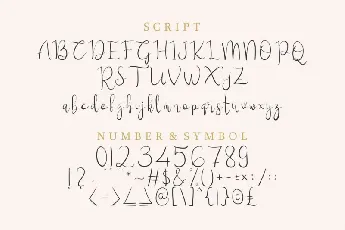 SCRIPT
ABCDEFGHIJKLMNOPQ
RSTUVWXYZ
abcdefghijklmnopqrstuvwxyz
NUMBER & SYMBOL
0123456789
!? " * ~ # $ & % () + - ± × / : :
< - > < _ > @ [ \ ] ^ { | } © £